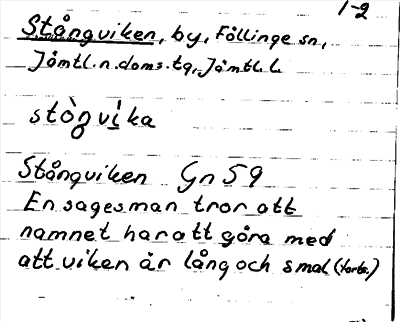 1-2
Stångviken, by, Föllinge sn,
Jämtl. n. doms. tg, Jämtl. l.
stògvìka
Stångviken Gn 59
En sagesman tror att
namnet har att göra med
att viken är lång och smal (forts.)